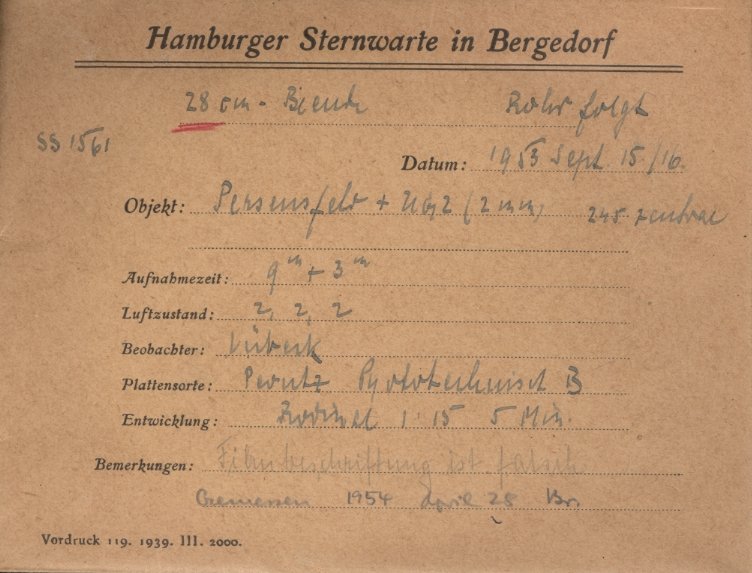 Hamburger Sternwarte in Bergedorf
28 cm - Blende Rohr folgt
SS 1561
Datum: 1953 Sept 15./16.
Objekt: Perseusfeld + (2 mm) 245 zentral
Aufnahmezeit: 9ᵐ + 3ᵐ
Luftzustand: 2, 2, 2
Beobachter: Lübeck
Plattensorte: Perutz Phototechnisch B
Entwicklung: Rodinal 1:15 5 Min.
Bemerkungen: Filmbeschriftung ist falsch
Gemessen 1954 April 28 Br.
Vordruck 119. 1939. III. 2000.